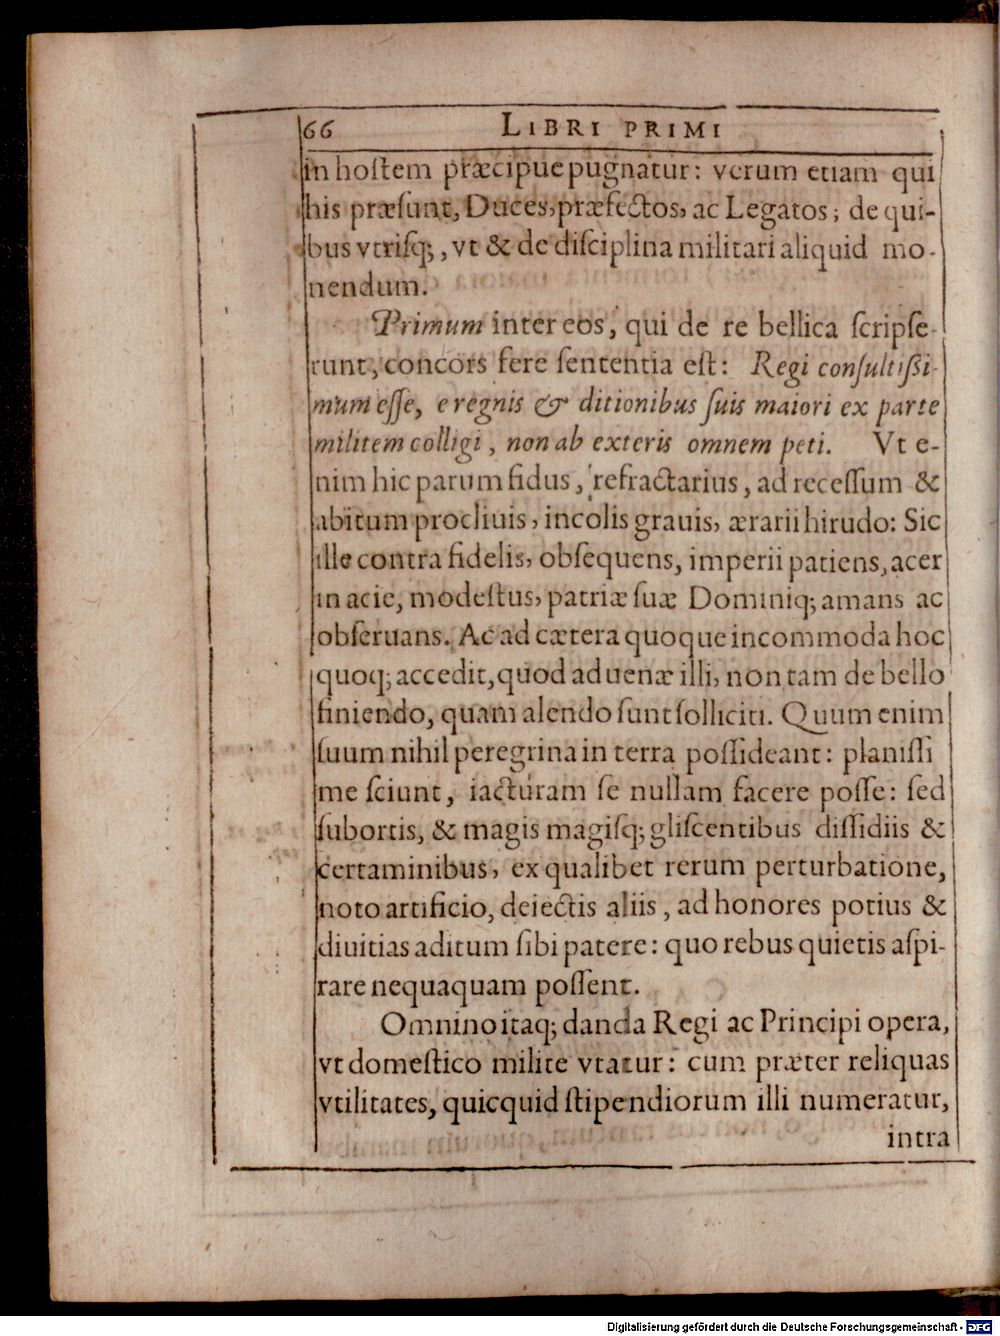 66 LIBRI PRIMI
in hoſtem præcipue pugnatur: verum etiam qui
his præſunt, Duces, præfectos, ac Legatos; de qui-
bus vtriſq;, vt & de diſciplina militari aliquid mo-
nendum.
Primum inter eos, qui de re bellica ſcripſe-
runt, concors fere ſententia eſt: Regi conſultiſsi-
mum eſſe, e regnis & ditionibus ſuis maiori ex parte
militem colligi, non ab exteris omnem peti. Vt e-
nim hic parum fidus, refractarius, ad receſſum &
abitum procliuis, incolis grauis, ærarii hirudo: Sic
ille contra fidelis, obſequens, imperii patiens, acer
in acie, modeſtus, patriæ ſuæ Dominiq; amans ac
obſeruans. Ac ad cætera quoque incommoda hoc
quoq; accedit, quod aduenæ illi, non tam de bello
finiendo, quam alendo ſunt ſolliciti. Quum enim
ſuum nihil peregrina in terra poſſideant: planiſſi
me ſciunt, iacturam ſe nullam facere poſſe: ſed
ſubortis, & magis magiſq; gliſcentibus diſſidiis &
certaminibus, ex qualibet rerum perturbatione,
noto artificio, deiectis aliis, ad honores potius &
diuitias aditum ſibi patere: quo rebus quietis aſpi-
rare nequaquam poſſent.
Omnino itaq; danda Regi ac Principi opera,
vt domeſtico milite vtatur: cum præter reliquas
vtilitates, quicquid ſtipendiorum illi numeratur,
intra
Digitalisierung gefördert durch die Deutsche Forschungsgemeinschaft - DFG